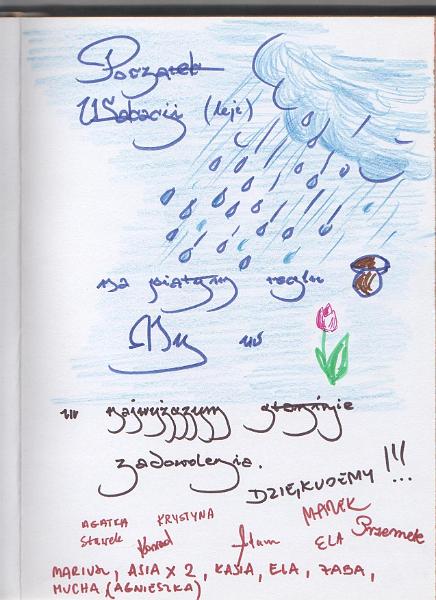 Początek
Wakacji (leje)
na piątym roglu
My w
w najwyższym stopniu
zadowolenia.
DZIĘKUJEMY !!!...
AGATKA KRYSTYNA MAREK
Sławek Konrad Adam ELA Przemek
MARIUSZ, ASIA X 2, KASIA, ELA, ŻABA,
MUCHA (AGNIESZKA)